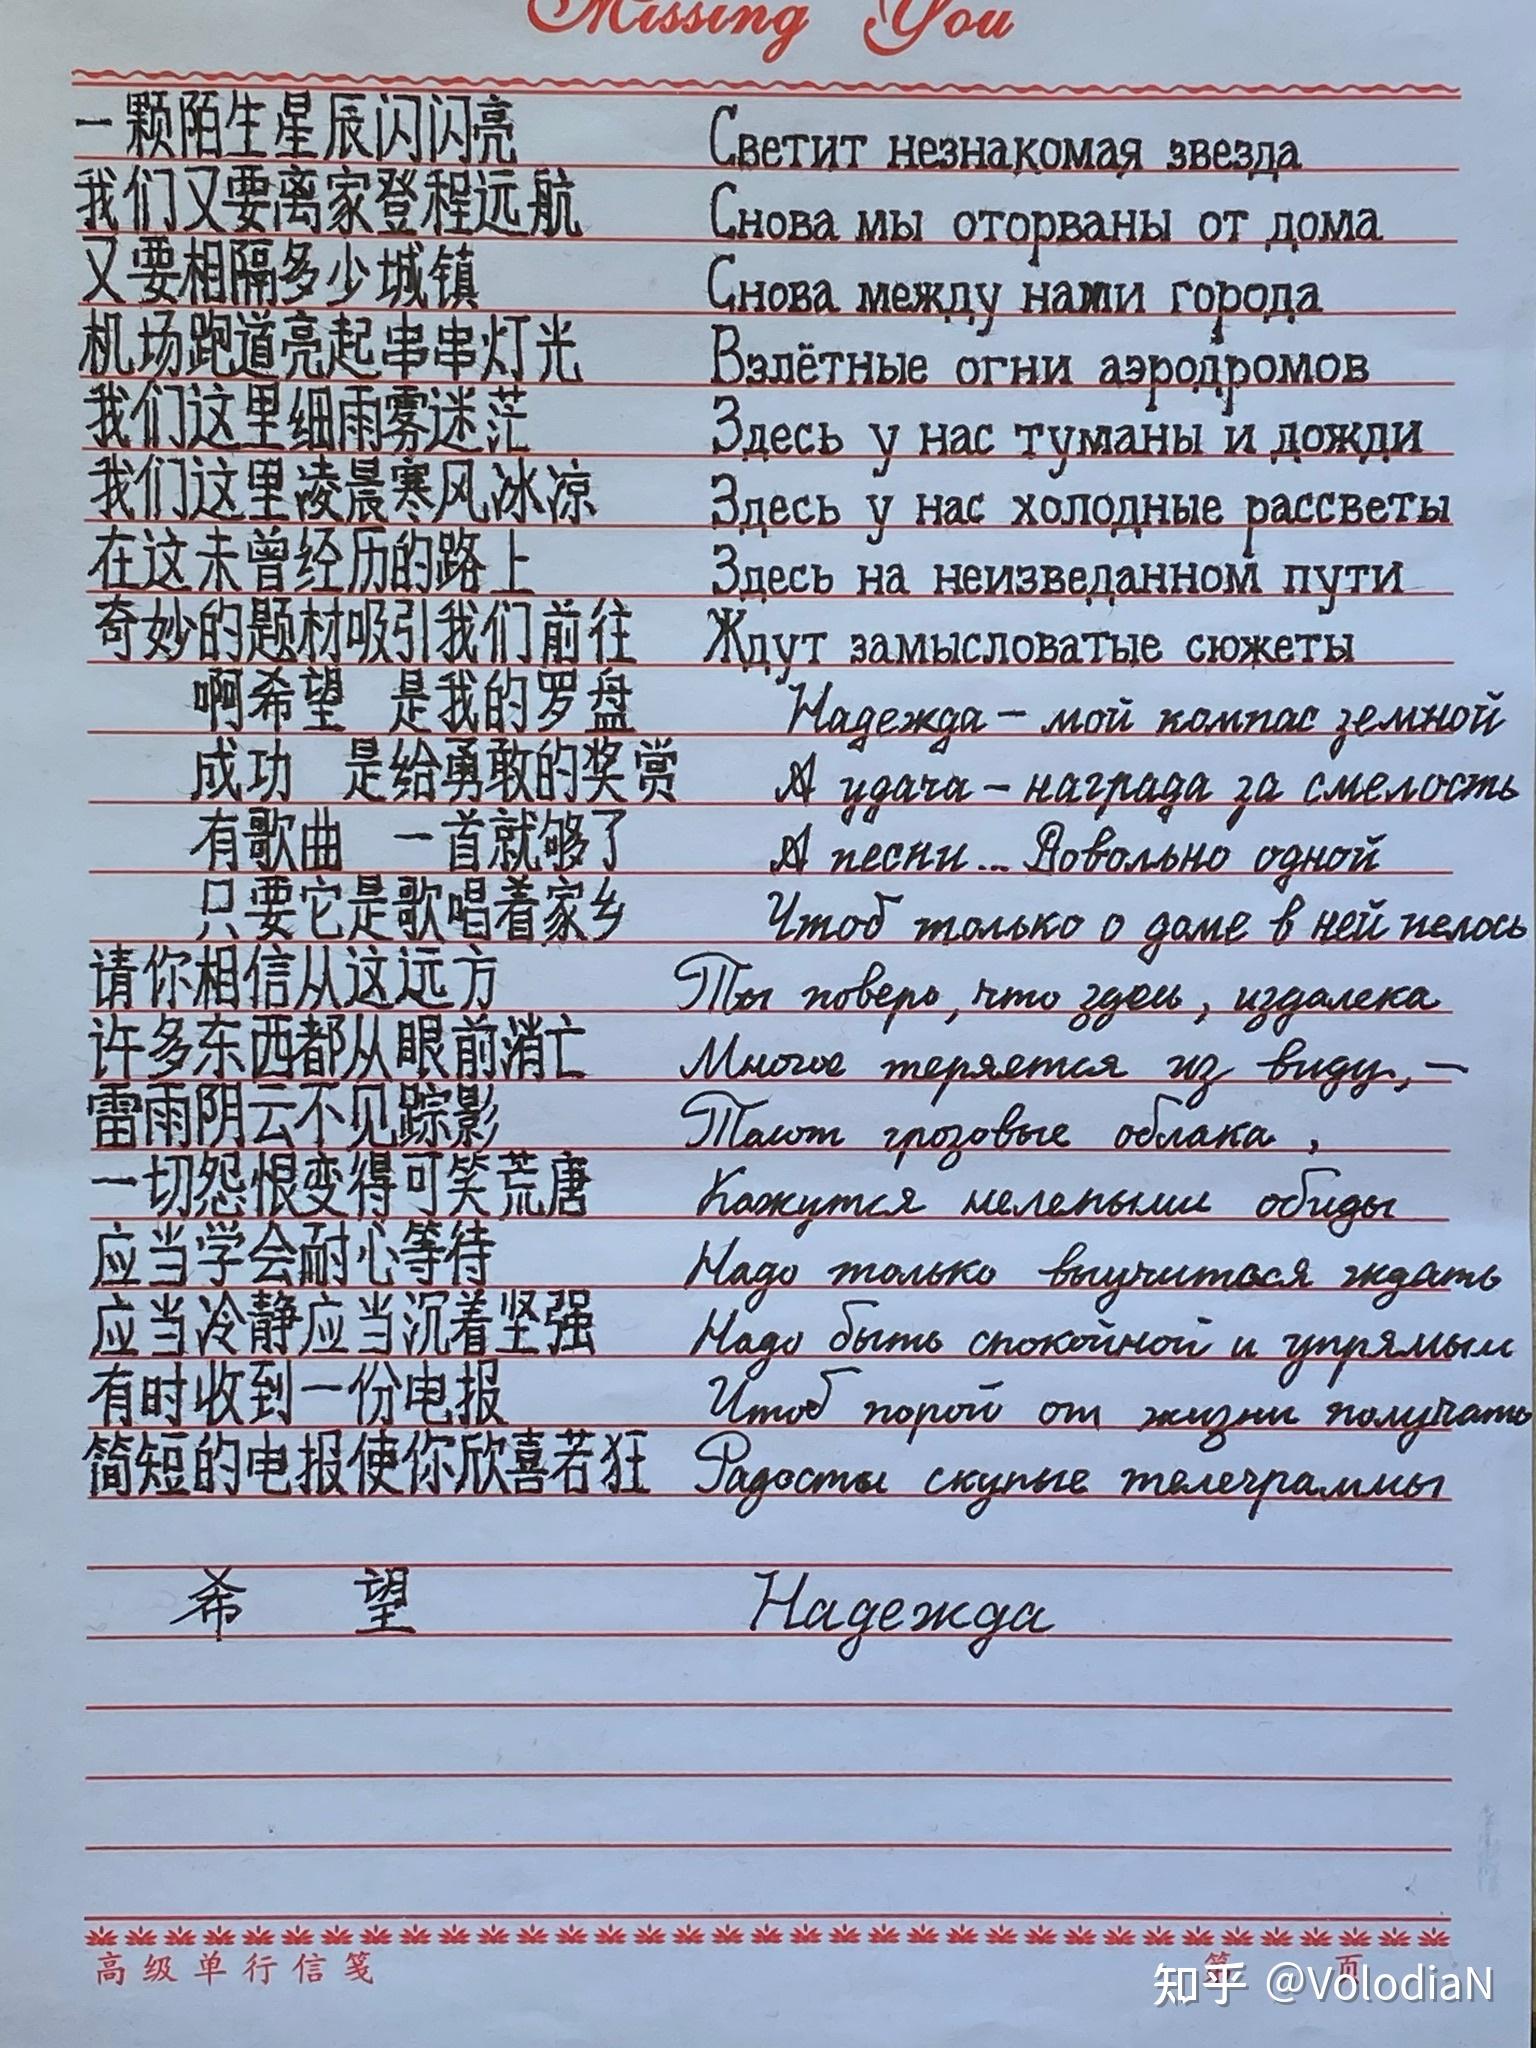 Missing You
一颗陌生星辰闪闪亮 Светит незнакомая звезда
我们又要离家登程远航 Снова мы оторваны от дома
又要相隔多少城镇 Снова между нами города
机场跑道亮起串串灯光 Взлётные огни аэродромов
我们这里细雨雾迷茫 Здесь у нас туманы и дожди
我们这里凌晨寒风冰凉 Здесь у нас холодные рассветы
在这未曾经历的路上 Здесь на неизведанном пути
奇妙的题材吸引我们前往 Ждут замысловатые сюжеты
啊希望 是我的罗盘 Надежда – мой компас земной
成功 是给勇敢的奖赏 А удача – награда за смелость
有歌曲 一首就够了 А песни... Довольно одной
只要它是歌唱着家乡 Чтоб только о доме в ней пелось
请你相信从这远方 Ты поверь, что здесь, издалека
许多东西都从眼前消亡 Многое теряется из виду, –
雷雨阴云不见踪影 Тают грозовые облака,
一切怨恨变得可笑荒唐 Кажутся нелепыми обиды
应当学会耐心等待 Надо только выучиться ждать
应当冷静应当沉着坚强 Надо быть спокойной и упрямым
有时收到一份电报 Чтоб порой от жизни получать
简短的电报使你欣喜若狂 Радости скупые телеграммы
希望 Надежда
高级单行信笺 第 页
知乎 @VolodiaN